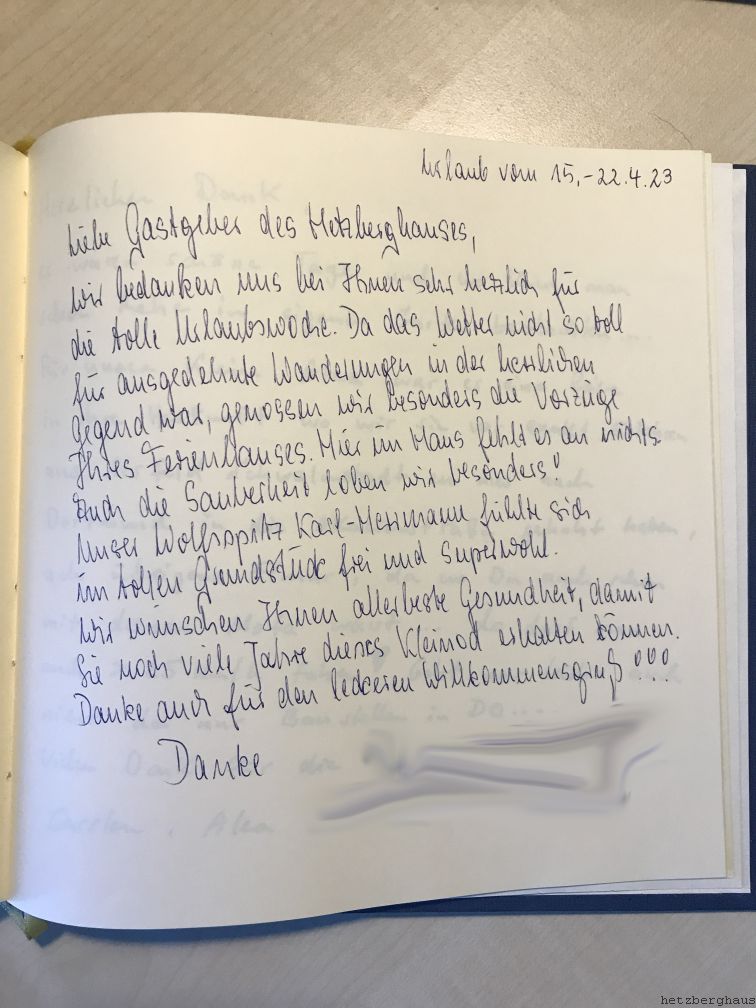 Urlaub vom 15.-22.4.23
Liebe Gastgeber des Hetzberghauses,
wir bedanken uns bei Ihnen sehr herzlich für
die tolle Urlaubswoche. Da das Wetter nicht so toll
für ausgedehnte Wanderungen in der herrlichen
Gegend war, genossen wir besonders die Vorzüge
Ihres Ferienhauses. Hier im Haus fehlt es an nichts.
Auch die Sauberkeit loben wir besonders!
Unser Wolfsspitz Karl-Hermann fühlte sich
im tollen Grundstück frei und superwohl.
Wir wünschen Ihnen allerbeste Gesundheit, damit
Sie noch viele Jahre dieses Kleinod erhalten können.
Danke auch für den leckeren Willkommensgruß!!!
Danke
hetzberghaus